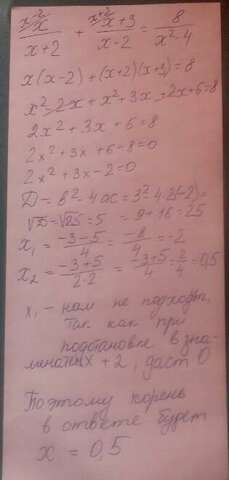 x-2/ x/x+2 + x+2/ x+3/x-2 = 8/x²-4
x(x-2)+(x+2)(x+3)=8
x²-2x+x²+3x+2x+6=8
2x²+3x+6=8
2x²+3x+6-8=0
2x²+3x-2=0
D=b²-4ac=3²-4·2(-2)=
√D=√25=5 =9+16=25
x₁=-3-5/4=-8/4=-2
x₂=-3+5/2·2=-3+5/4=2/4=0,5
x₁ - нам не подходит,
так как при
подстановке в зна-
менатель x+2, даст 0
Поэтому корень
в ответе будет
x = 0,5